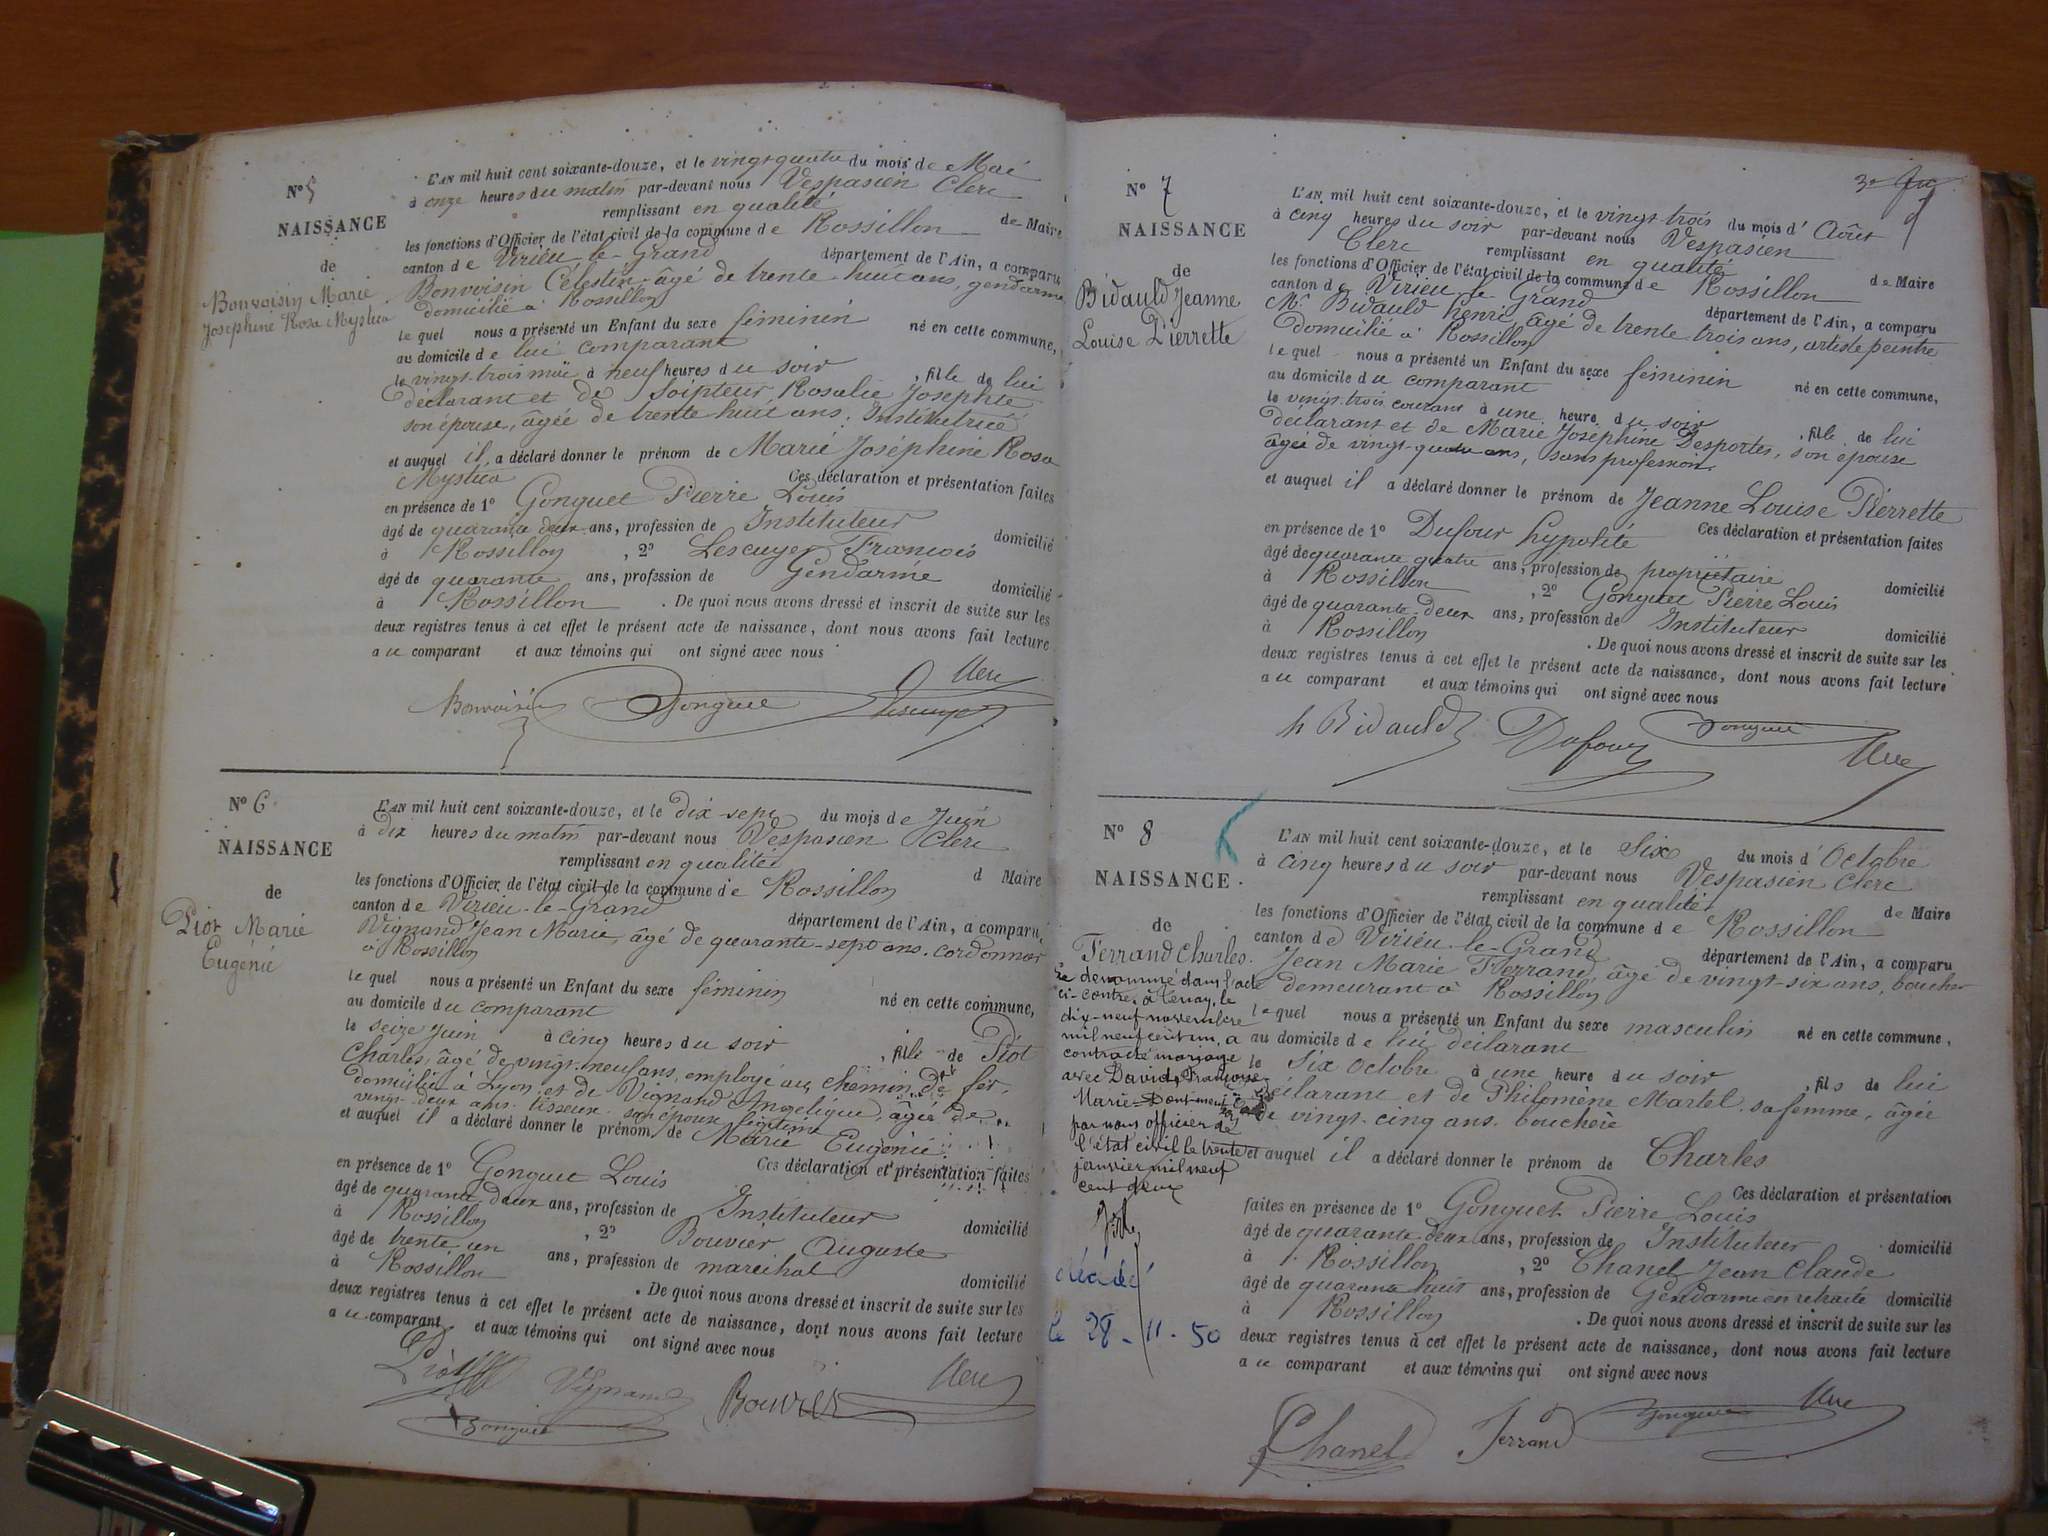 N° 5
NAISSANCE
de
Bonvoisin Marie
Josephine Rosa Mystica
L'AN mil huit cent soixante-douze, et le vingt-quatre du mois de Mai
à onze heures du matin par-devant nous Vespasien Clerc
remplissant en qualité de Maire
les fonctions d'Officier de l'état civil de la commune de Rossillon
canton de Virieu-le-Grand département de l'Ain, a comparu
Bonvoisin Célestin âgé de trente-huit ans, gendarme
domicilié à Rossillon
le quel nous a présenté un Enfant du sexe féminin né en cette commune,
au domicile de lui comparant
le vingt-trois mai à neuf heures du soir, fille de lui
déclarant et de Rosalie Josephte
son épouse, âgée de trente-huit ans, Institutrice
et auquel il a déclaré donner le prénom de Marie Joséphine Rosa
Mystica Ces déclaration et présentation faites
en présence de 1° Gonguet Pierre Louis
âgé de quarante deux ans, profession de Instituteur domicilié
à Rossillon, 2° Lescuyer François
âgé de quarante ans, profession de Gendarme domicilié
à Rossillon. De quoi nous avons dressé et inscrit de suite sur les
deux registres tenus à cet effet le présent acte de naissance, dont nous avons fait lecture
au comparant et aux témoins qui ont signé avec nous
Clerc
Bonvoisin Gonguet Lescuyer
N° 6
NAISSANCE
de
Piot Marie
Eugénie
L'AN mil huit cent soixante-douze, et le dix-sept du mois de Juin
à dix heures du matin par-devant nous Vespasien Clerc
remplissant en qualité d Maire
les fonctions d'Officier de l'état civil de la commune de Rossillon
canton de Virieu-le-Grand département de l'Ain, a comparu
Vignand Jean Marie, âgé de quarante-sept ans, cordonnier
à Rossillon
le quel nous a présenté un Enfant du sexe féminin né en cette commune,
au domicile du comparant
le seize Juin à cinq heures du soir, fille de Piot
Charles, âgé de vingt-neuf ans, employé au chemin de fer,
domicilié à Lyon et de Vignand Angélique, âgée de
vingt-deux ans son épouse légitime
et auquel il a déclaré donner le prénom de Marie Eugénie
Ces déclaration et présentation faites
en présence de 1° Gonguet Louis
âgé de quarante deux ans, profession de Instituteur domicilié
à Rossillon, 2° Bouvier Auguste
âgé de trente un ans, profession de maréchal domicilié
à Rossillon. De quoi nous avons dressé et inscrit de suite sur les
deux registres tenus à cet effet le présent acte de naissance, dont nous avons fait lecture
au comparant et aux témoins qui ont signé avec nous
Piot Vignand Bouvier Clerc
Gonguet
N° 7
NAISSANCE
de
Bidauld Jeanne
Louise Pierrette
L'AN mil huit cent soixante-douze, et le vingt-trois du mois d'Août
à cinq heures du soir par-devant nous Vespasien
Clerc remplissant en qualité de Maire
les fonctions d'Officier de l'état civil de la commune de Rossillon
canton de Virieu-le-Grand département de l'Ain, a comparu
Mr Bidauld henri, âgé de trente-trois ans, artiste peintre
domicilié à Rossillon
le quel nous a présenté un Enfant du sexe féminin né en cette commune,
au domicile du comparant
le vingt-trois courant à une heure du soir, fille de lui
déclarant et de Marie Joséphine Desportes, son épouse
âgée de vingt-quatre ans, sans profession
et auquel il a déclaré donner le prénom de Jeanne Louise Pierrette
Ces déclaration et présentation faites
en présence de 1° Dufour hypolite
âgé de quarante quatre ans, profession de propriétaire domicilié
à Rossillon, 2° Gonguet Pierre Louis
âgé de quarante-deux ans, profession de Instituteur domicilié
à Rossillon. De quoi nous avons dressé et inscrit de suite sur les
deux registres tenus à cet effet le présent acte de naissance, dont nous avons fait lecture
au comparant et aux témoins qui ont signé avec nous
h Bidauld Dufour Gonguet Clerc
N° 8
NAISSANCE.
de
Ferrand Charles.
Le dénommé dans l'acte
ci-contre, à Tenay, le
dix-neuf novembre
mil neuf cent un, a
contracté mariage
avec David, Françoise
Marie = Dont mention
par nous officier de
l'état civil le trente
janvier mil neuf
cent deux
décédé
le 28-11-50
L'AN mil huit cent soixante-douze, et le Six du mois d'Octobre
à cinq heures du soir par-devant nous Vespasien Clerc
remplissant en qualité de Maire
les fonctions d'Officier de l'état civil de la commune de Rossillon
canton de Virieu-le-Grand département de l'Ain, a comparu
Jean Marie Ferrand, âgé de vingt-six ans, boucher
demeurant à Rossillon
le quel nous a présenté un Enfant du sexe masculin né en cette commune,
au domicile de lui déclarant
le Six Octobre à une heure du soir, fils de lui
déclarant et de Philomène Martel sa femme, âgée
de vingt-cinq ans, bouchère
et auquel il a déclaré donner le prénom de Charles
Ces déclaration et présentation
faites en présence de 1° Gonguet Pierre Louis
âgé de quarante deux ans, profession de Instituteur domicilié
à Rossillon, 2° Chanel Jean Claude
âgé de quarante-huit ans, profession de Gendarme en retraite domicilié
à Rossillon. De quoi nous avons dressé et inscrit de suite sur les
deux registres tenus à cet effet le présent acte de naissance, dont nous avons fait lecture
au comparant et aux témoins qui ont signé avec nous
Chanel Ferrand Gonguet Clerc